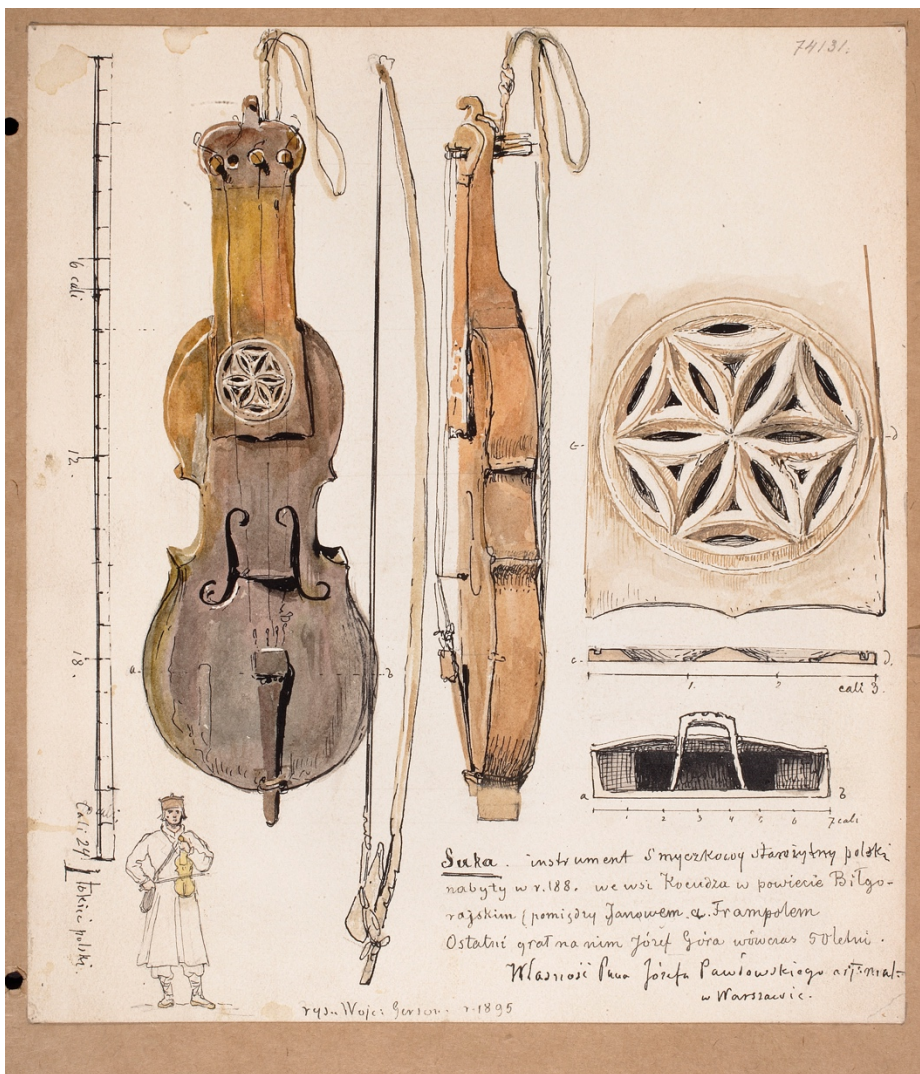 74131.
6 cali
12.
18.
Cali 24
łokieć polski.
a
b
c
d
c
d.
1.
2
cali 3.
a
b
1
2
3
4
5
6
7 cali
Suka. instrument Smyczkowy starożytny polski
nabyty w r. 188. we wsi Kocudza w powiecie Biłgo-
rajskim (pomiędzy Janowem a Frampolem
Ostatni grał na nim Józef Góra wówczas 50letni.
Własność Pana Józefa Pawłowskiego
w Warszawie.
rys. Wojc: Gerson. r. 1895